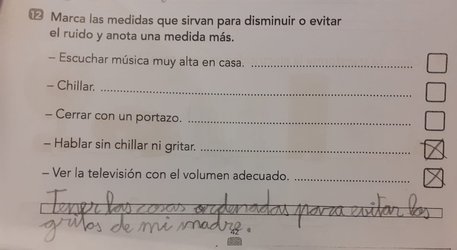 12 Marca las medidas que sirvan para disminuir o evitar
el ruido y anota una medida más.
– Escuchar música muy alta en casa.
– Chillar.
– Cerrar con un portazo.
– Hablar sin chillar ni gritar.
– Ver la televisión con el volumen adecuado.
Tener las cosas ordenadas para evitar los
gritos de mi madre.
42